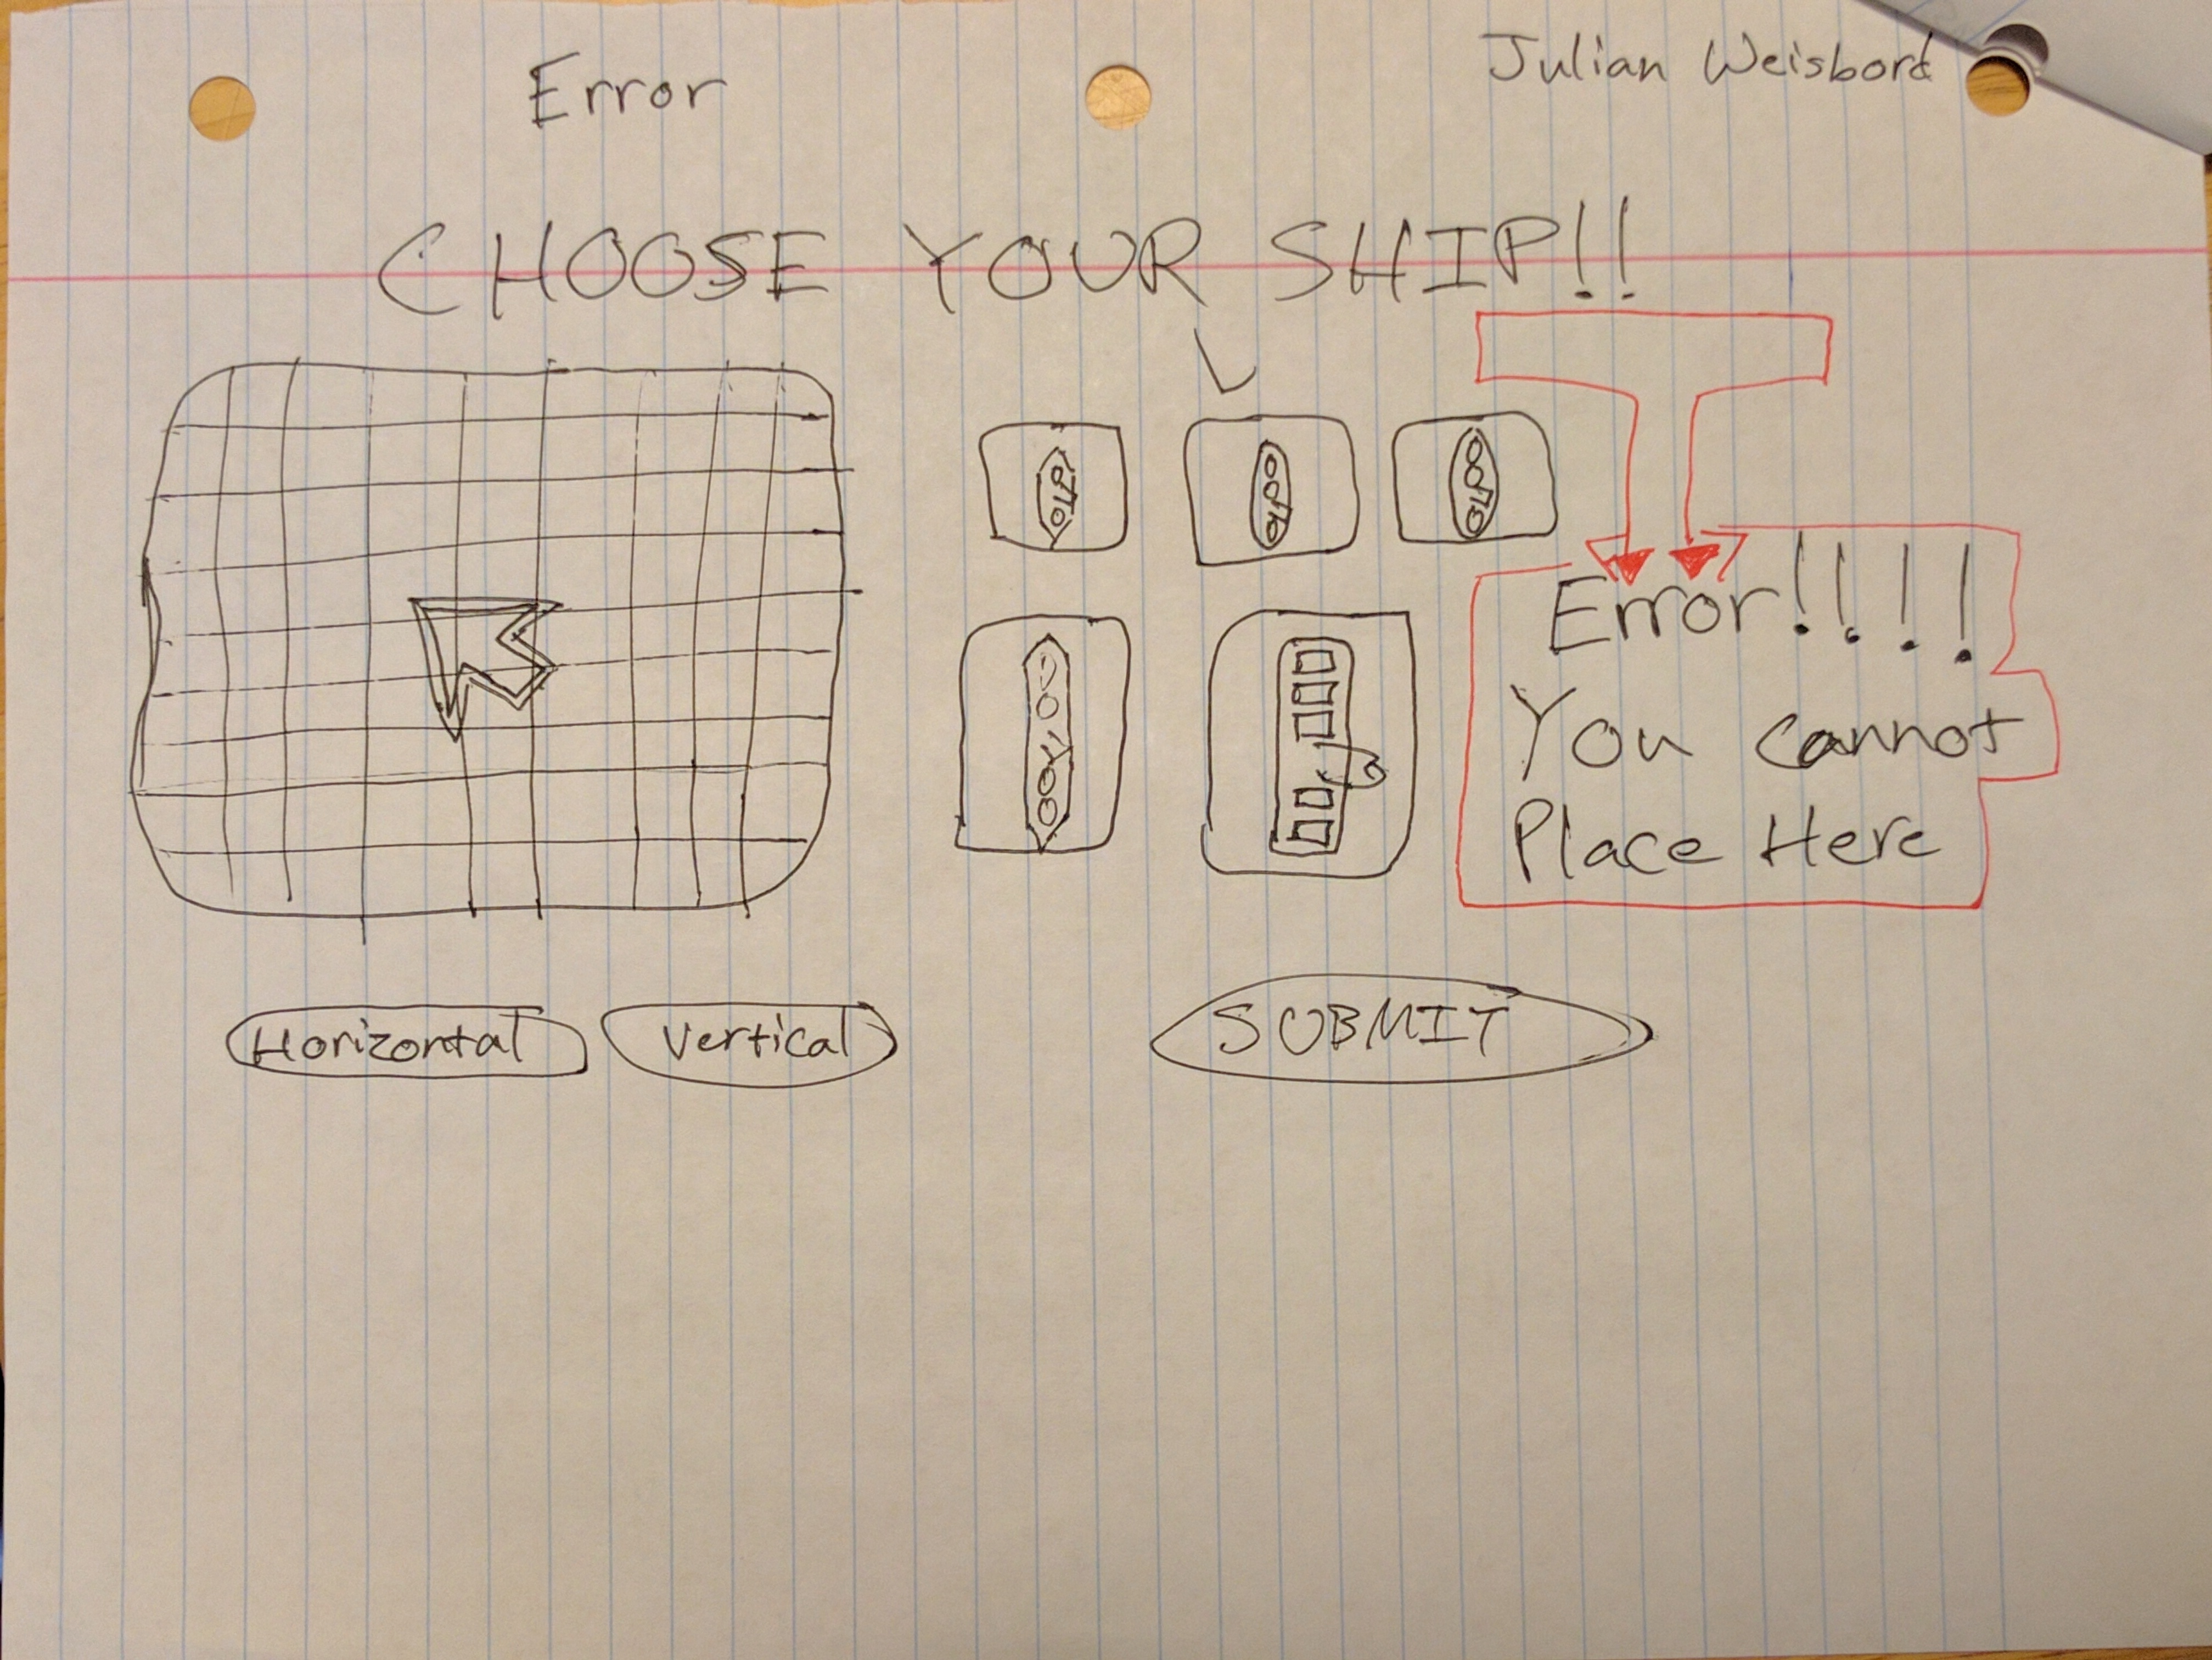 Error
Julian Weisbord
CHOOSE YOUR SHIP!!
Error!!!!
You cannot
Place Here
Horizontal
Vertical
SUBMIT